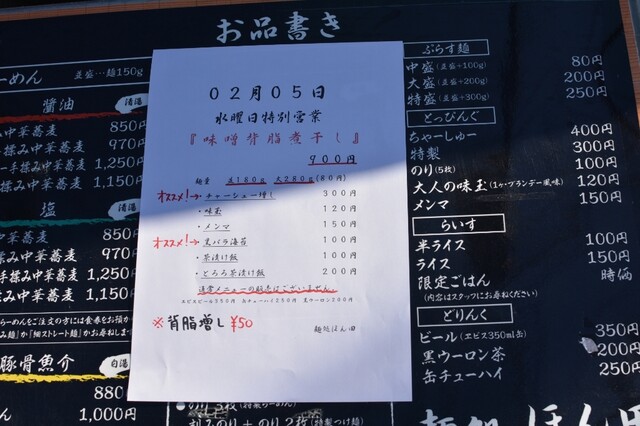 お品書き
らーめん 並盛…麺150g
醤油 清湯
み中華蕎麦 850円
揉み中華蕎麦 970円
手揉み中華蕎麦 1,150円
手揉み中華蕎麦 1,250円
塩 清湯
華蕎麦 850円
み中華蕎麦 970円
手揉み中華蕎麦 1,150円
手揉み中華蕎麦 1,250円
らーめんをご注文の方には食券をお預か
み麺」か「細ストレート麺」かお尋ねします
豚骨魚介 白湯
880円
めん 1,000円
02月05日
水曜日特別営業
『味噌背脂煮干し』
900円
麺量 並180g 大280g(80円)
オススメ!→チャーシュー増し 300円
・味玉 120円
・メンマ 150円
オススメ!→黒バラ海苔 100円
・茶漬け飯 100円
・とろろ茶漬け飯 200円
通常メニューの販売はございません
エビスビール350円 缶チューハイ250円 黒ウーロン200円
※背脂増し ¥50
麺処ほん田
ぷらす麺
中盛(並盛+100g) 80円
大盛(並盛+200g) 200円
特盛(並盛+300g) 250円
とっぴんぐ
ちゃーしゅー 400円
特製 300円
のり(5枚) 100円
大人の味玉(1ヶ・ブランデー風味) 120円
メンマ 150円
らいす
半ライス 100円
ライス 150円
限定ごはん 時価
(内容はスタッフにお尋ねください)
どりんく
ビール(エビス350ml缶) 350円
黒ウーロン茶 200円
缶チューハイ 250円
のり3枚(特製らーめん)
刻みのり+のり2枚(特製つけ麺)
麺処 ほん田